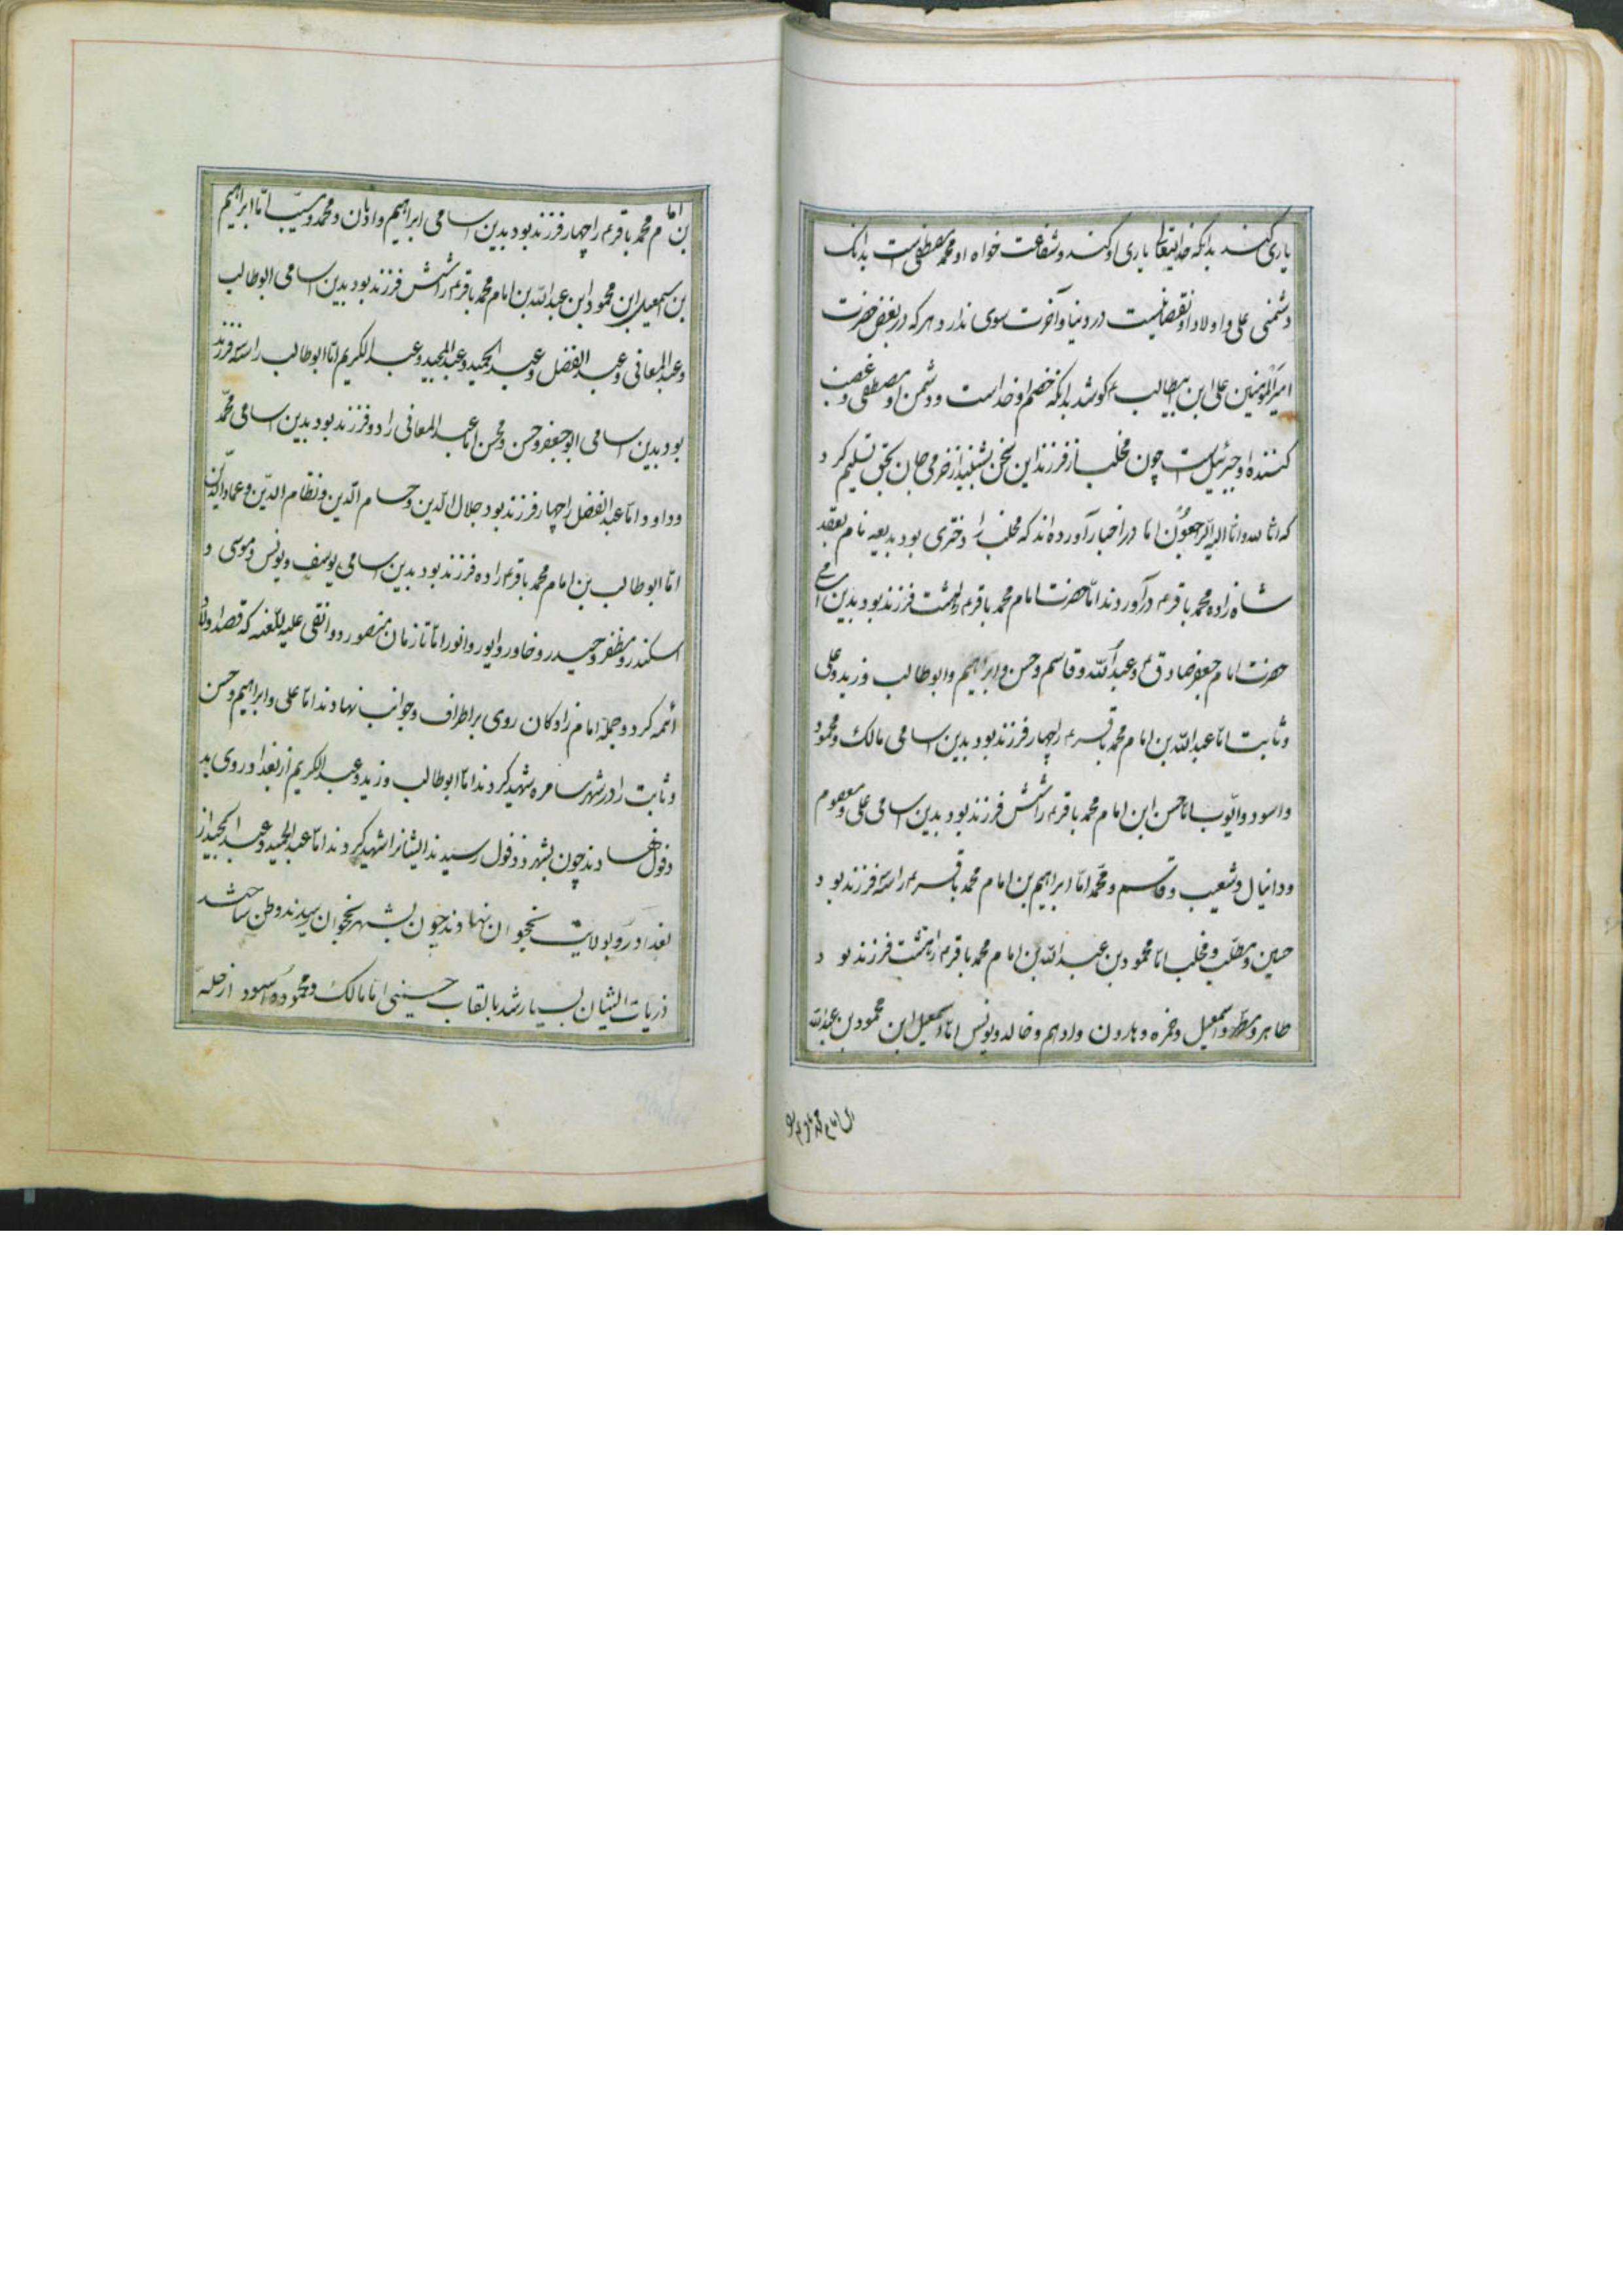 یاری کند بدانکه خدایتعالی یاری او کند و شفاعت خواه او محمد مصطفی است بدانک
دشمنی علی و اولاد او نقصانیست در دنیا و آخرت سوی ندارد و هر که در بغض حضرت
امیرالمومنین علی ابن ابیطالب ع کوشد بدانکه خصم او خداست و دشمن او مصطفی و غضب
کننده او جبرئیل است چون مخلب از فرزند این سخن بشنید از خرمی جان بحق تسلیم کرد
که انا لله و انا الیه راجعون اما در اخبار آورده اند که مخلب را دختری بود بدیعه نام بعقد
شاه زاده محمد باقرم درآوردند اما حضرت امام محمد باقرم را هشت فرزند بود بدین اسامی
حضرت امام جعفر صادق م و عبدالله و قاسم و حسن و ابراهیم و ابوطالب و زید و علی
و ثابت اما عبدالله بن امام محمد باقرم را چهار فرزند بود بدین اسامی مالک و محمود
و اسود و ایوب اما حسن ابن امام محمد باقرم را شش فرزند بود بدین اسامی علی و معصوم
و دانیال و شعیب و قاسم و محمد اما ابراهیم بن امام محمد باقرم را سه فرزند بود
حسین و مطلب و مخلب اما محمود بن عبدالله بن امام محمد باقرم را هشت فرزند بود
طاهر و مطهر و اسمعیل و حمزه و هارون و ادهم و خالد و یونس اما اسمعیل ابن محمود بن عبدالله
بن امام محمد باقرم
بن امام محمد باقرم را چهار فرزند بود بدین اسامی ابراهیم و اذبان و محمد و مسیب اما ابراهیم
بن اسمعیل ابن محمود ابن عبدالله بن امام محمد باقرم را شش فرزند بود بدین اسامی ابوطالب
و عبدالمعافی و عبدالفضل و عبدالحمید و عبدالمجید و عبدالکریم اما ابوطالب را سه فرزند
بود بدین اسامی ابوجعفر و حسن و محسن اما عبدالمعافی را دو فرزند بود بدین اسامی محمد
و داود اما عبدالفضل را چهار فرزند بود جلال الدین و حسام الدین و نظام الدین و عمادالدین
اما ابوطالب بن امام محمد باقرم را ده فرزند بود بدین اسامی یوسف و یونس و موسی و
اسکندر و مظفر و حیدر و خاور و ایور و انور اما تا زمان منصور دوانقی علیه اللعنه که قصد اولاد
ائمه کرد و جمله امام زادکان روی بر اطراف و جوانب نهادند اما علی و ابراهیم و حسن
و ثابت را در شهر سامره شهید کردند اما ابوطالب و زید و عبدالکریم از بغداد روی بد
دفول نهادند چون بشهر دذفول رسیدند ایشانرا شهید کردند اما عبدالحمید و عبدالمجید از
بغداد رو بولایت نخجوان نهادند چون بشهر نخجوان رسیدند وطن ساختند
ذریات ایشان بسیار شد بالقاب حسینی اما مالک و محمود و اسود از حله